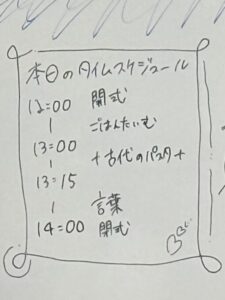 本日のタイムスケジュール
12:00 開式
| ごはんたいむ
13:00
| +古代のパスタ+
13:15
| 言葉
14:00 閉式